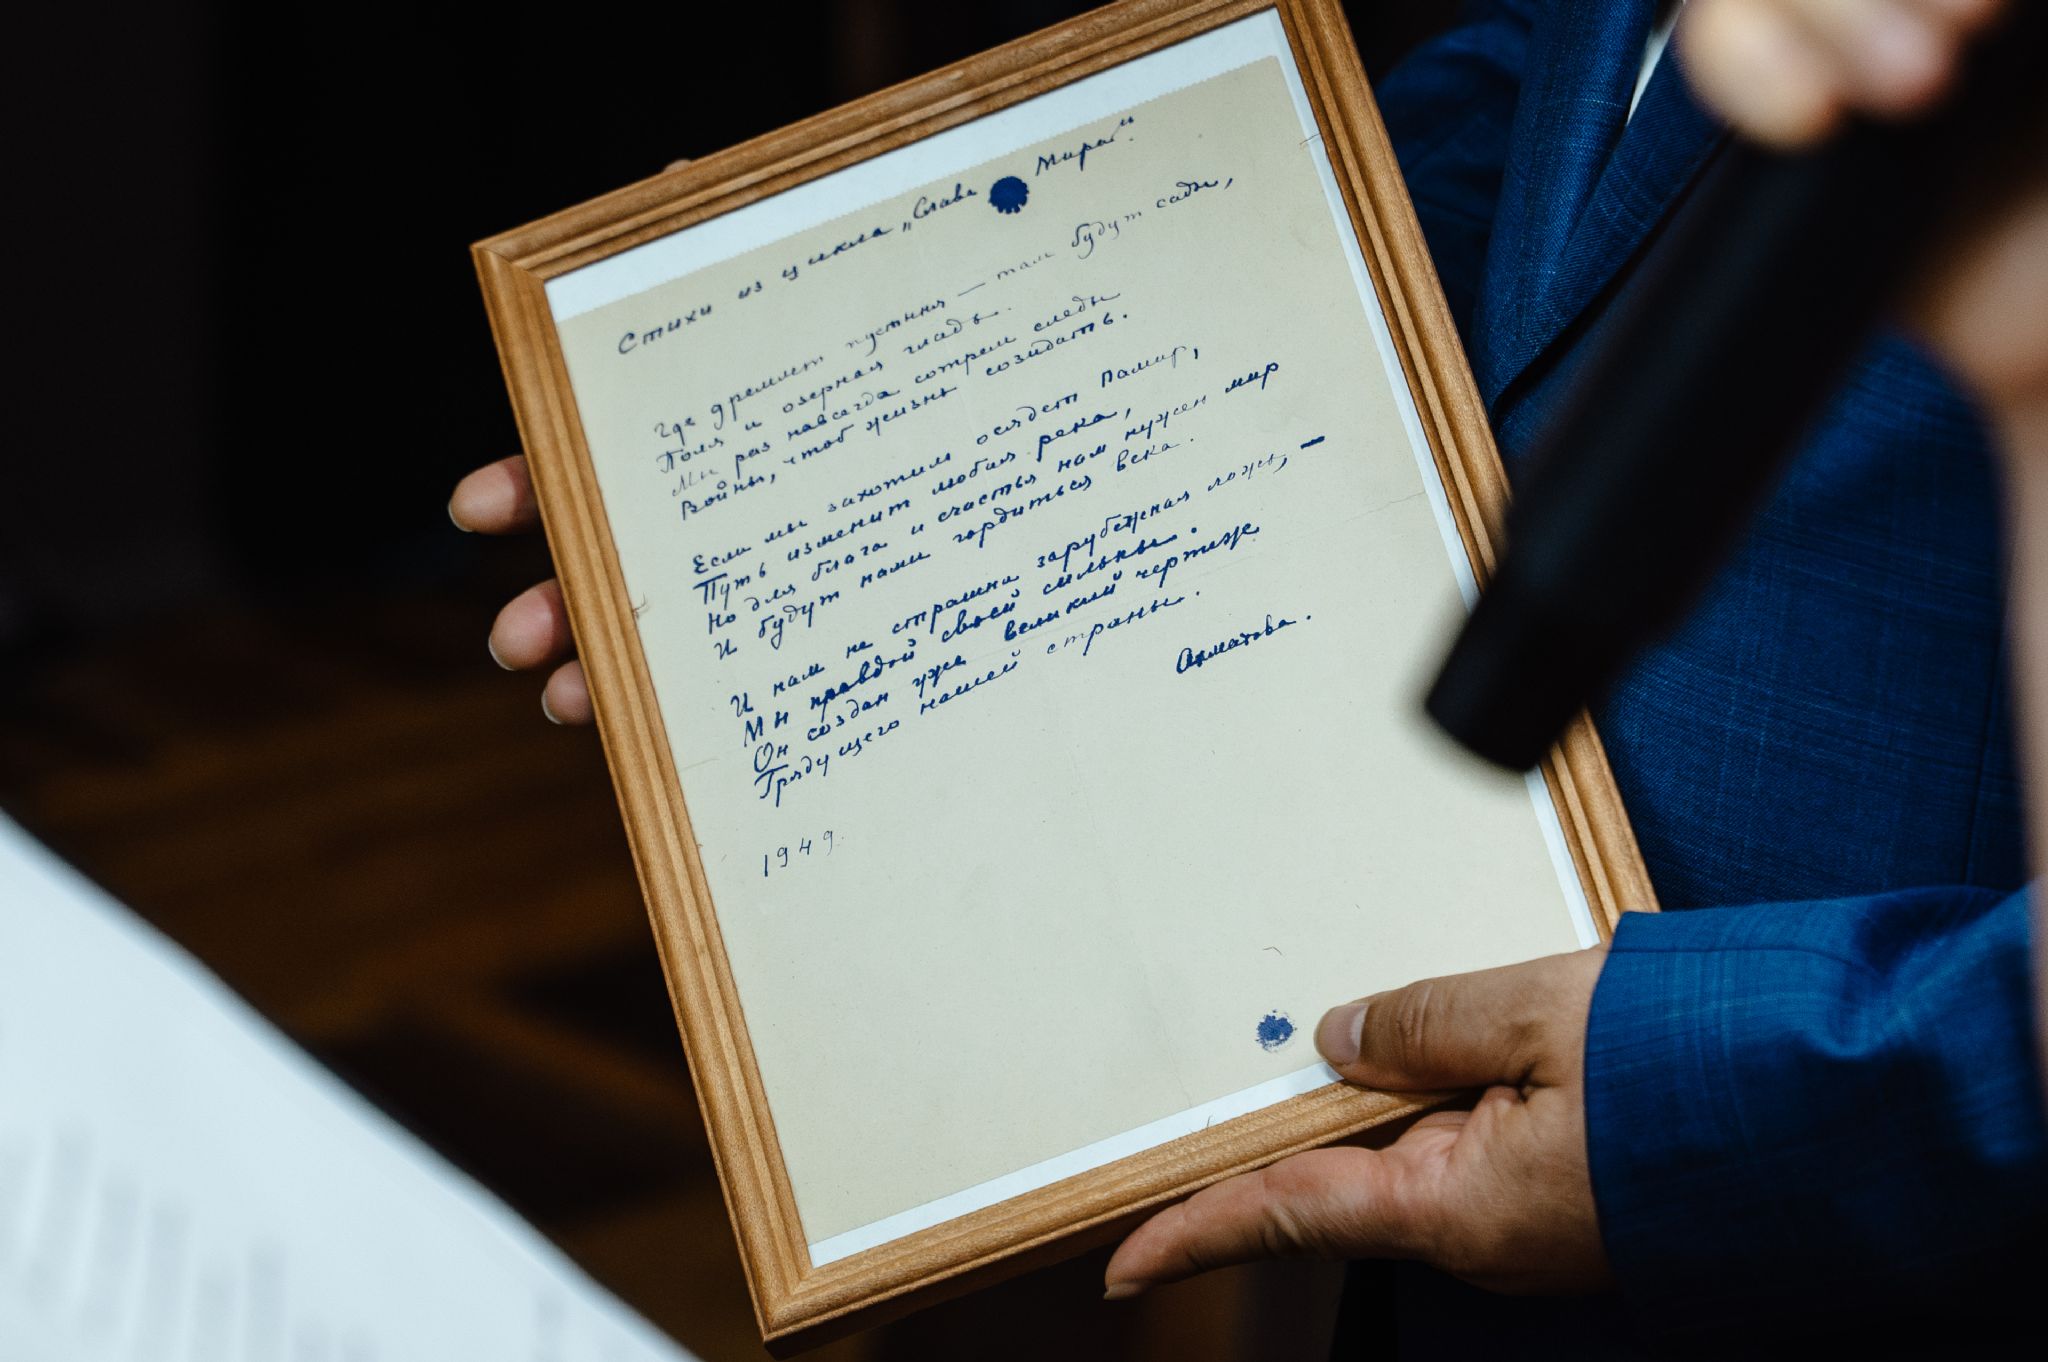 Стихи из цикла „Слава Мира“.
Где дремлет пустыня — там будут сады,
Поля и озерная гладь.
Мы раз навсегда сотрем следы
Войны, чтоб жизнь созидать.
Если мы захотим осядет Памир,
Путь изменит любая река,
Но для блага и счастья нам нужен мир
И будут нами гордиться века.
И нам не страшна зарубежная ложь, —
Мы правдой своей сильны.
Он создан уже великий чертеж
Грядущего нашей страны.
Ахматова.
1949.